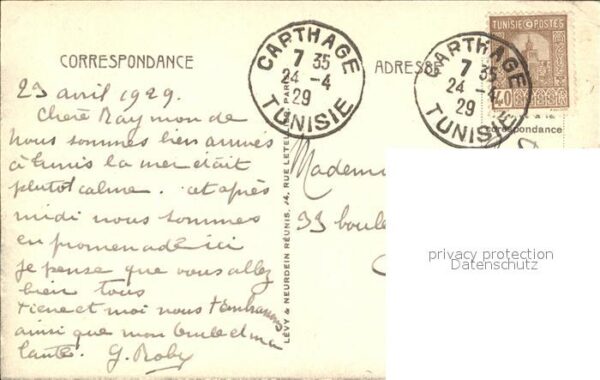 CORRESPONDANCE
ADRESSE
CARTHAGE
7 35
24 -4
29
TUNISIE
CARTHAGE
7 35
24 -4
29
TUNISIE
TUNISIE POSTES
40
correspondance
23 avril 1929.
Chère Raymonde
nous sommes bien arrivés
à Tunis la mer était
plutot calme. cet après
midi nous sommes
en promenade ici
je pense que vous allez
bien tous
et moi nous t'embrassons
ainsi que mon oncle et ma
tante. G. Roby
LÉVY & NEURDEIN RÉUNIS, 44, RUE LETELLIER, PARIS
Mademoi
33 boule
privacy protection
Datenschutz